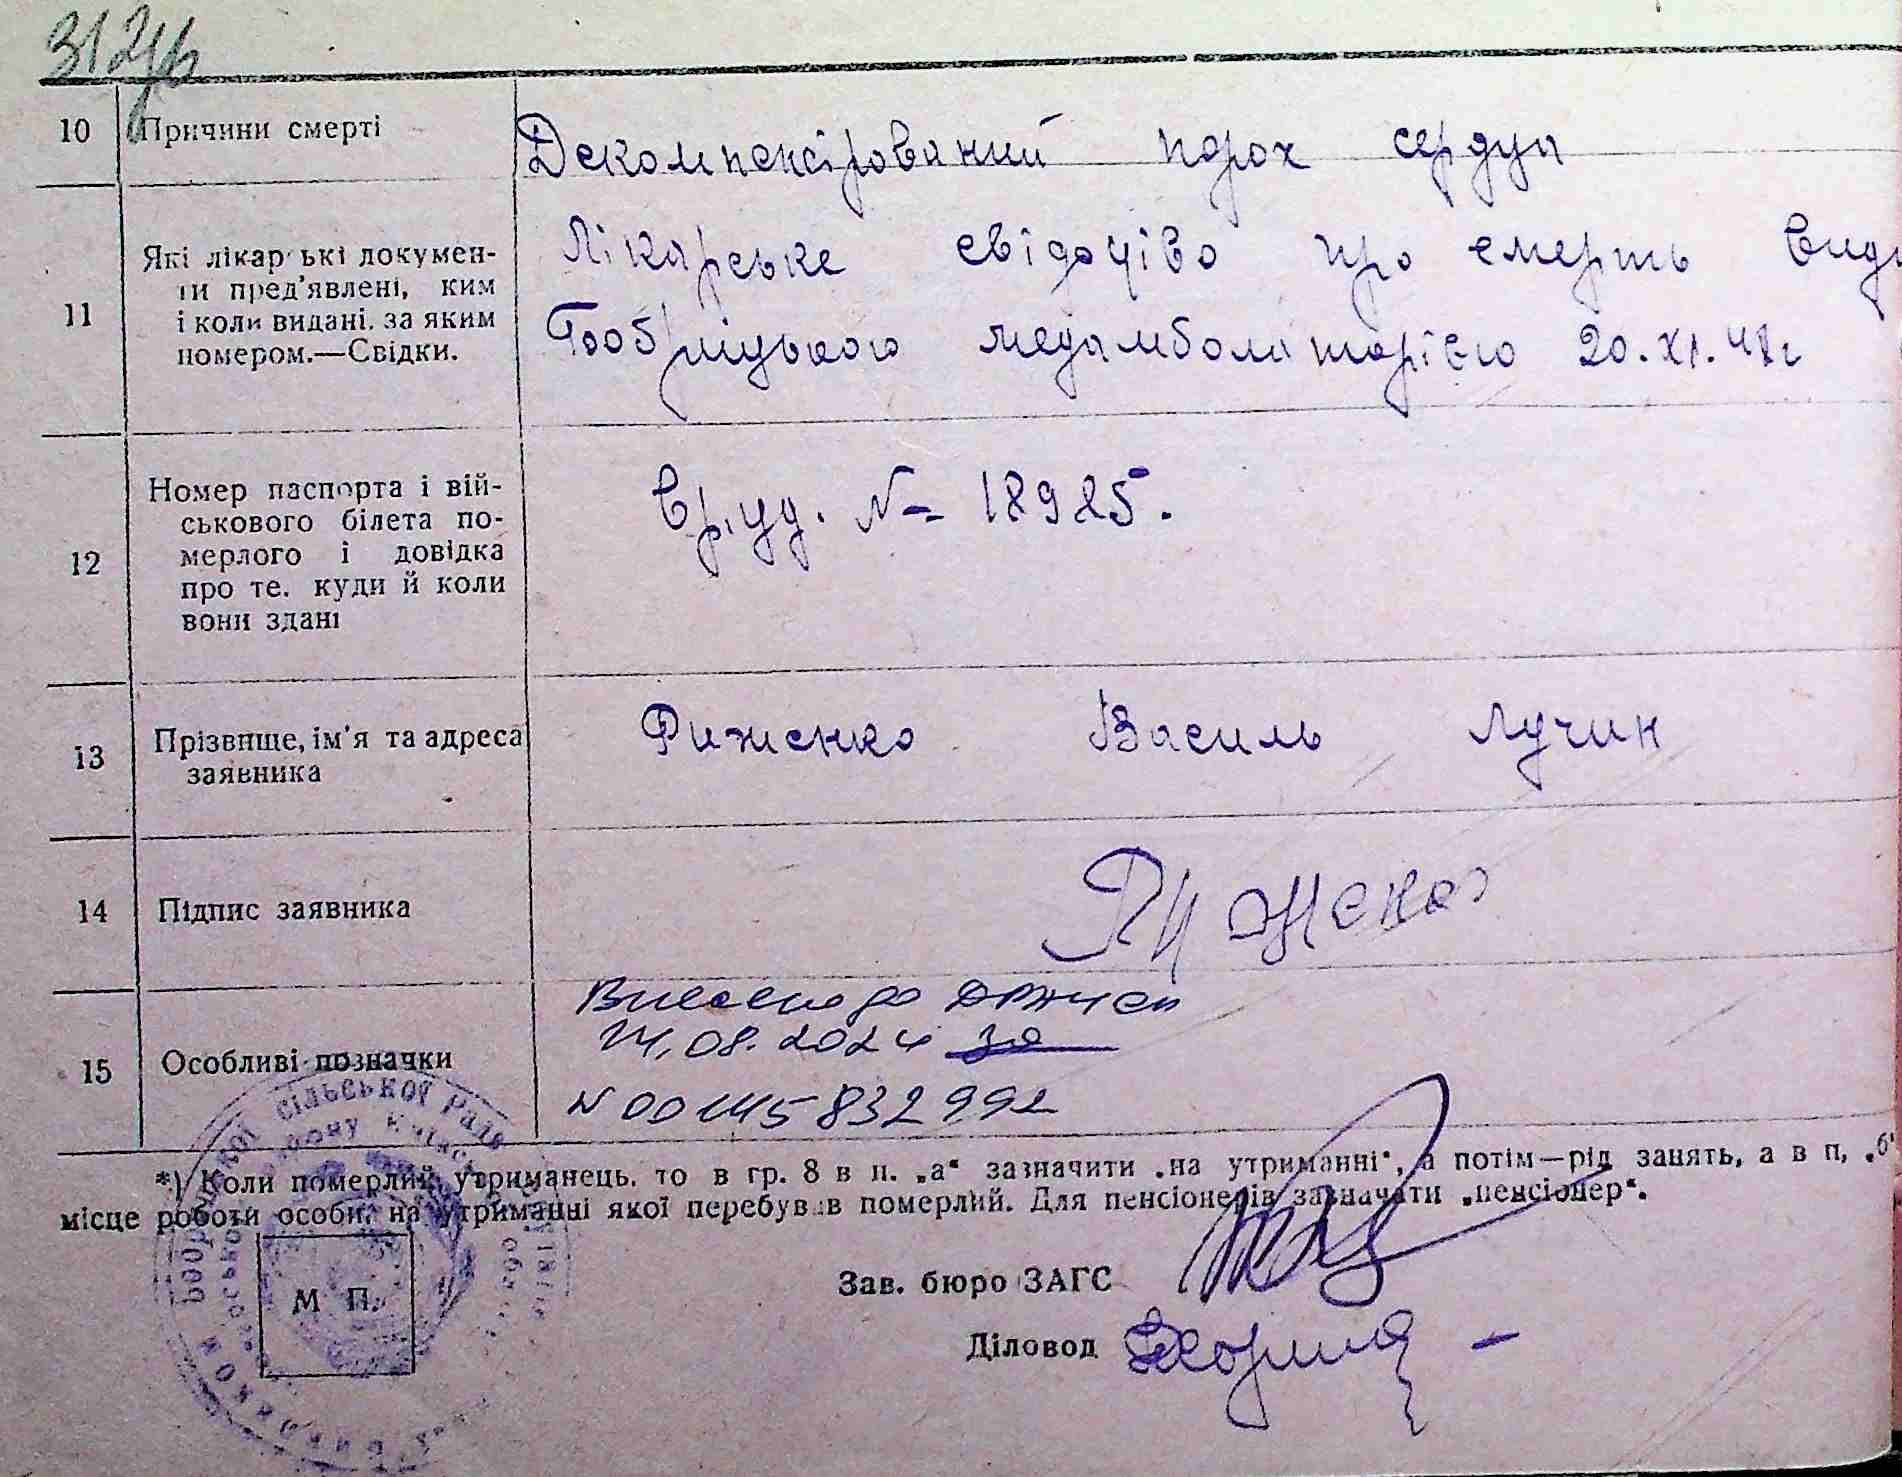 312
10 Причини смерті
Декомпенсірований порок сердця
11 Які лікарські докумен-
ти пред'явлені, ким
і коли видані, за яким
номером.—Свідки.
Лікарське свідоцтво про смерть вид
Бобрицькою медамболаторією 20.XI.48г
12 Номер паспорта і вій-
ськового білета по-
мерлого і довідка
про те, куди й коли
вони здані
Вр. уд. № 18985.
13 Прізвище, ім'я та адреса
заявника
Риженко Василь Лучин
14 Підпис заявника
Риженко
15 Особливі позначки
Внесено до ДРАЦСГ
14.08.2024 за
N 00145832992
*) Коли померлий утриманець, то в гр. 8 в п. „а“ зазначити „на утриманні“, а потім—рід занять, а в п. „б“
місце роботи особи, на утриманні якої перебував померлий. Для пенсіонерів зазначати „пенсіонер“.
сільської Ради
М П.
Зав. бюро ЗАГС
Діловод